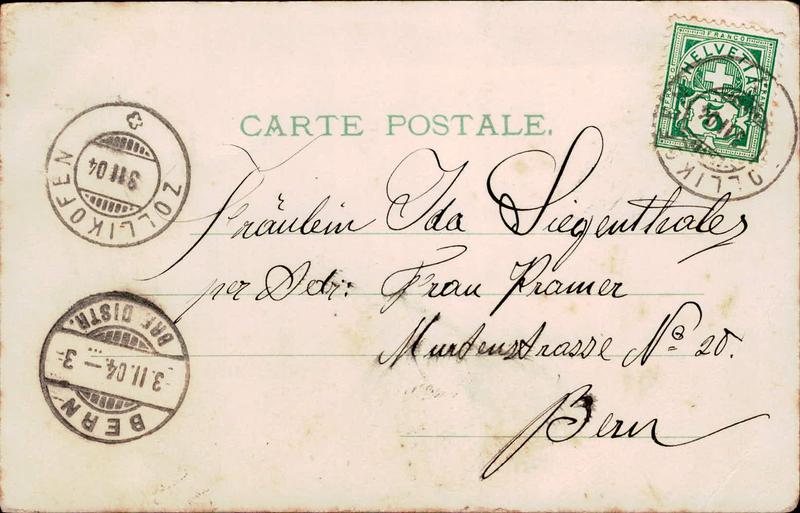 FRANCO
HELVETIA
5
CARTE POSTALE.
ZOLLIKOFEN
3 II 04
ZOLLIKOFEN
Fräulein Ida Siegenthaler
per Adr: Frau Kramer
Murtenstrasse No 20.
Bern
BRF. DISTR.
3.II.04 – 3
BERN